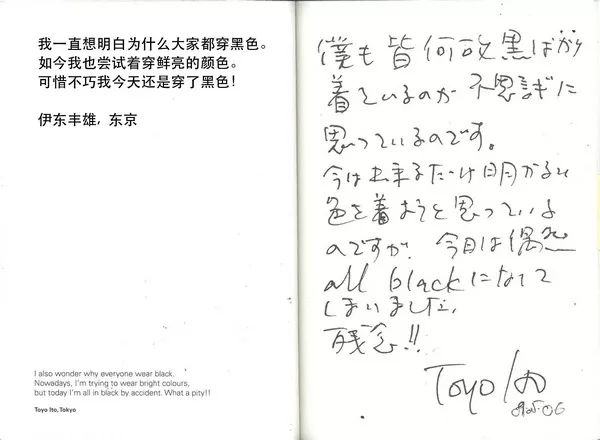 我一直想明白为什么大家都穿黑色。
如今我也尝试着穿鲜亮的颜色。
可惜不巧我今天还是穿了黑色！
伊东丰雄, 东京
I also wonder why everyone wear black.
Nowadays, I'm trying to wear bright colours,
but today I'm all in black by accident. What a pity!!
Toyo Ito, Tokyo
僕も皆何故黒ばかり
着ているのか不思議に
思っているのです。
今は出来るだけ明かるい
色を着ようと思っている
のですが、今日は偶然
all blackになって
しまいました,
残念!!
Toyo Ito